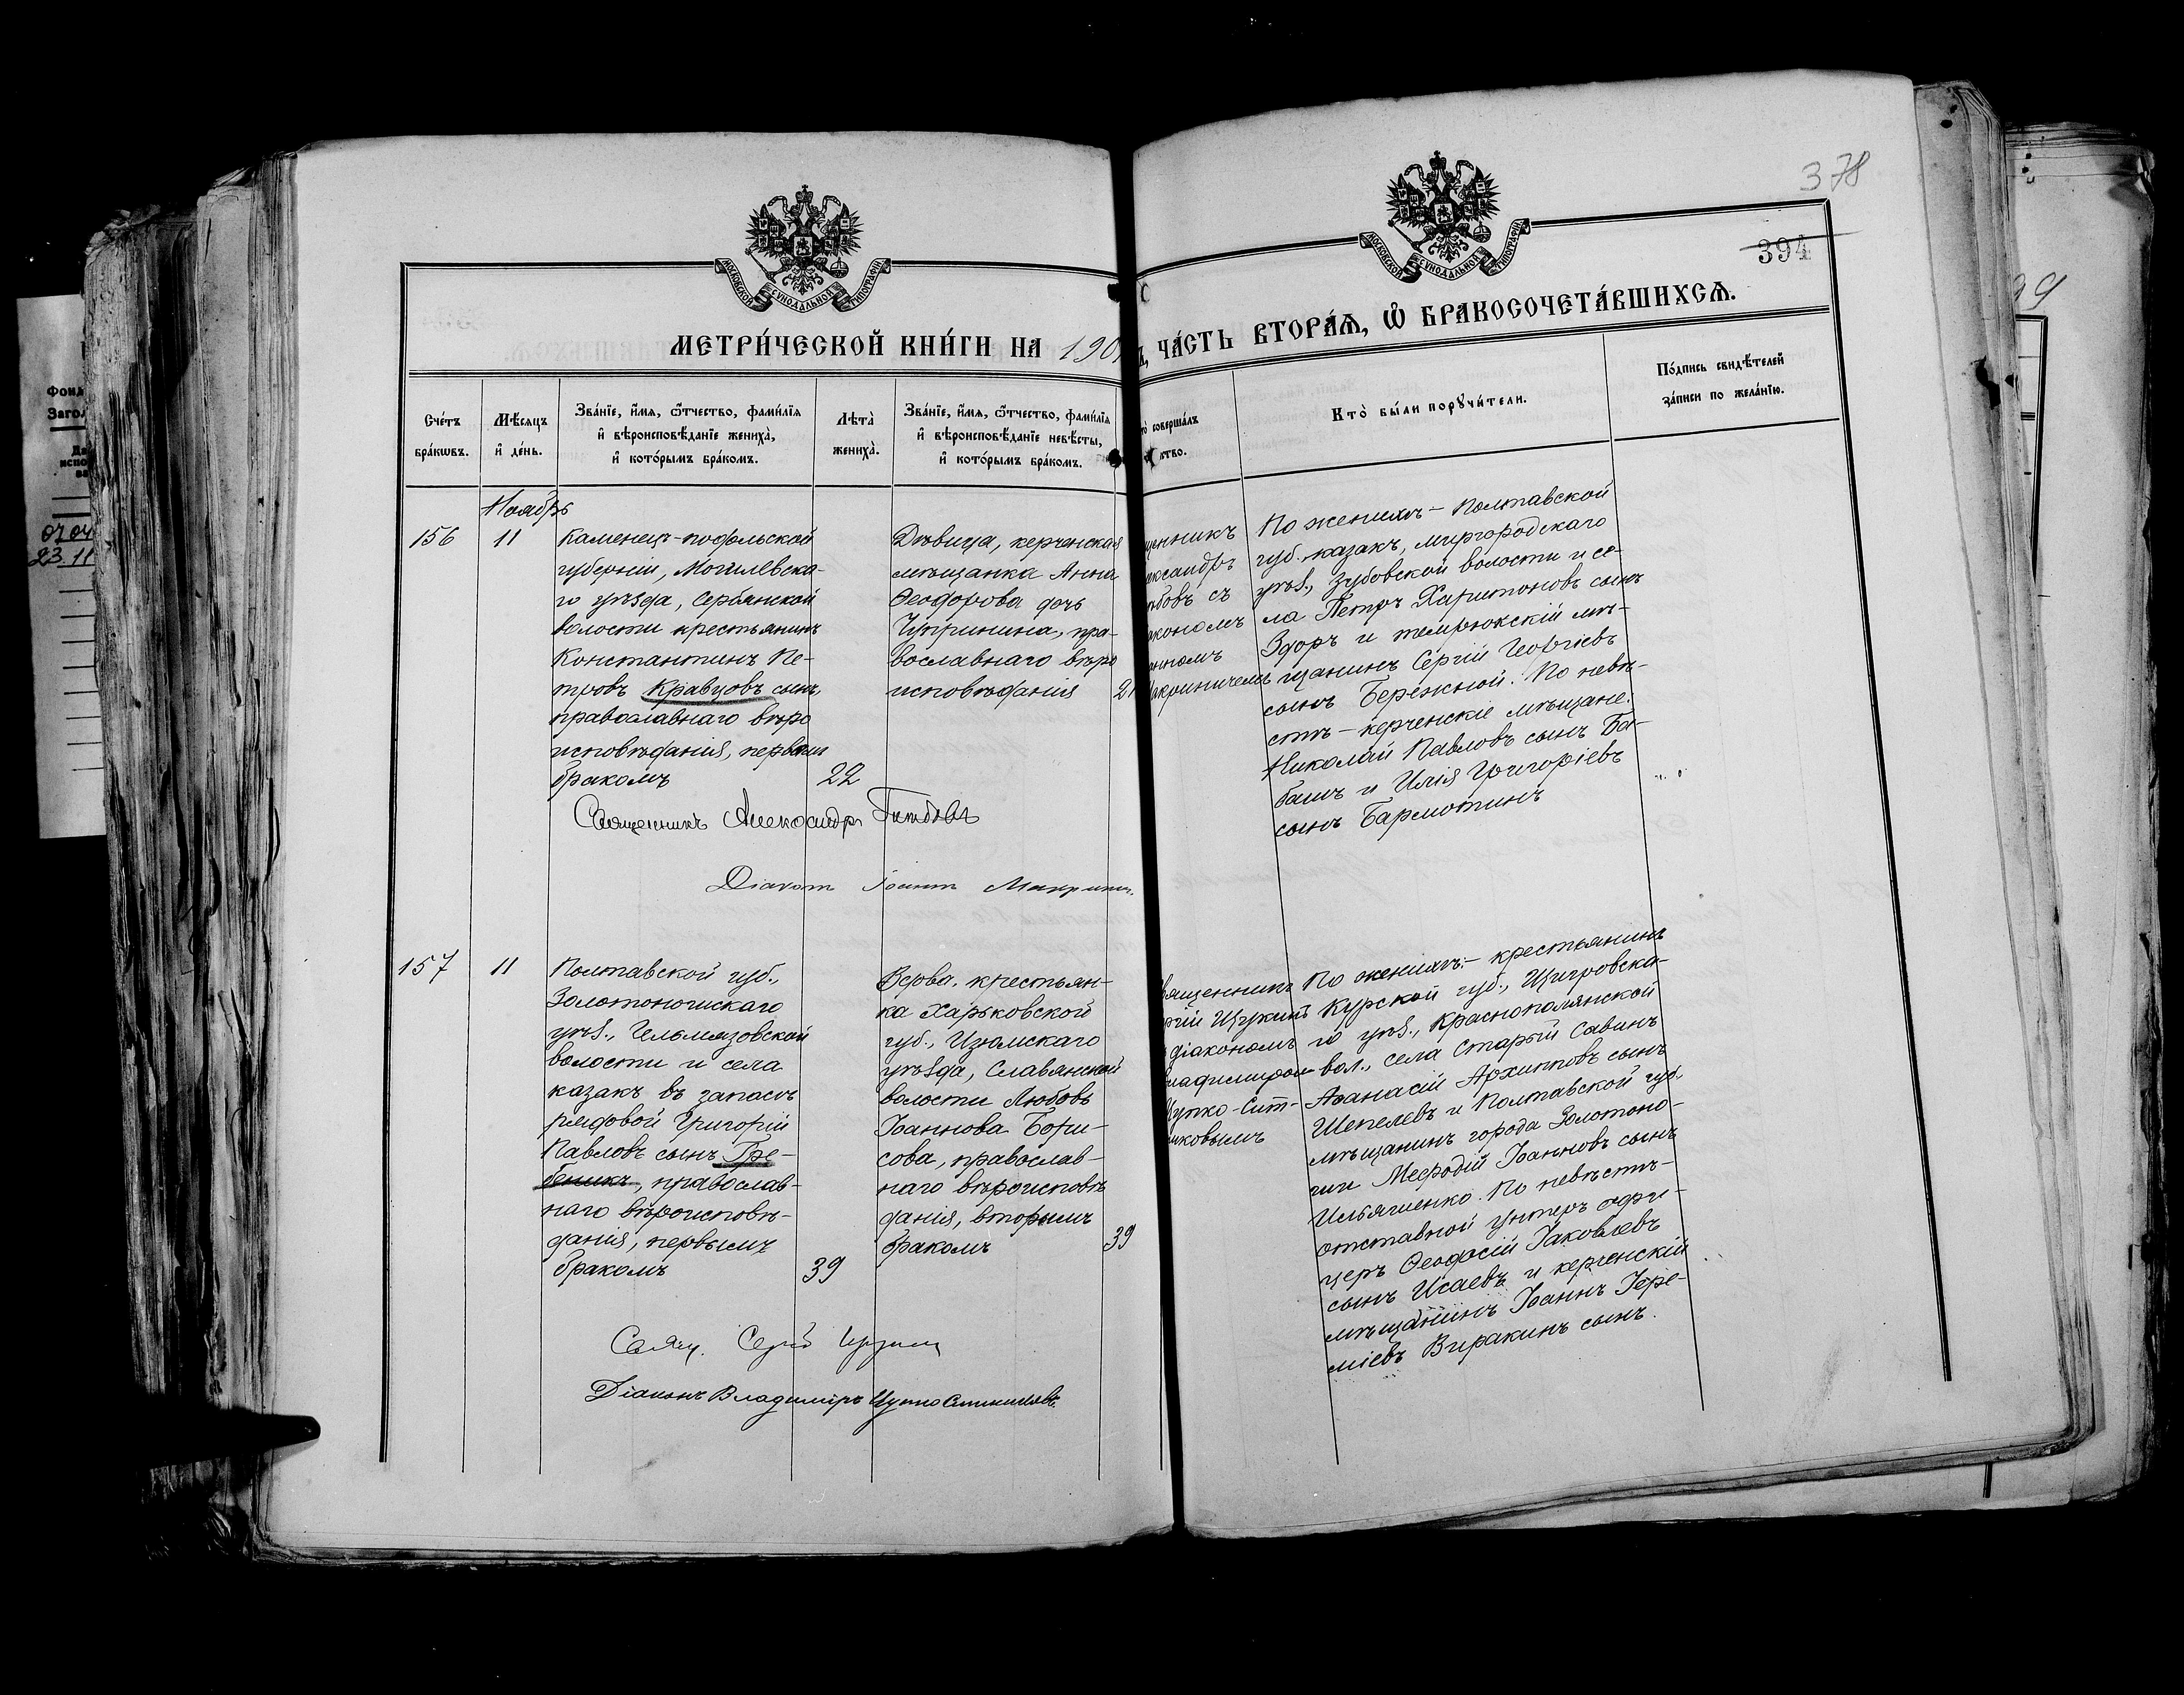 378
394
МОСКОВСКОЙ СѴНОДАЛЬНОЙ ТИПОГРАФІИ
МОСКОВСКОЙ СѴНОДАЛЬНОЙ ТИПОГРАФІИ
МЕТРИ́ЧЕСКОЙ КНИ́ГИ НА 190
ЧА́СТЬ ВТОРА́Ѧ, Ѽ БРАКОСОЧЕТА́ВШИХСѦ.
Сче́тъ бра́кѡвъ.
Мѣ́сяцъ и҆ де́нь.
Зва́нїе, и҆́мѧ, ѻ҆́тчество, фами́лїѧ и҆ вѣроисповѣ́данїе жениха̀, и҆ кото́рымъ бра́комъ.
Лѣ́та̀ жениха̀.
Зва́нїе, и҆́мѧ, ѻ҆́тчество, фами́лїѧ и҆ вѣроисповѣ́данїе невѣ́сты, и҆ кото́рымъ бра́комъ.
соверша́лъ
ство.
Кто̀ бы́ли порꙋчи́тели.
По́дпись свидѣ́телей за́писи по жела́нїю.
Ноябрь
156
11
Каменец-подольской
губерніи, Могилевска-
го уѣзда, Сербянской
волости крестьянинъ
Константинъ Пе-
тровъ Кравцовъ сынъ,
православнаго вѣро
исповѣданія, первымъ
бракомъ
22
Дѣвица, керченская
мѣщанка Анна
Ѳеодорова дочь
Чупринина, пра-
вославнаго вѣро
исповѣданія
21
щенникъ
ександръ
бовъ съ
акономъ
анномъ
акриничемъ
По женихѣ – Полтавской
губ. казакъ, миргородскаго
уѣз., Зубовской волости и се-
ла Петръ Харитоновъ сынъ
Здоръ и темрюкскій мѣ-
щанинъ Сергій Георгіевъ
сынъ Бережной. По невѣ-
стѣ – керченскіе мѣщане:
Николай Павловъ сынъ Ба-
башъ и Илія Григоріевъ
сынъ Бармотинъ
Священникъ Александръ
Діаконъ Іоаннъ Макринич.
157
11
Полтавской губ.,
Золотоношскаго
уѣз., Гельмязовской
волости и села
казакъ въ запасѣ
рядовой Григорій
Павловъ сынъ Гре-
беникъ, православ-
наго вѣроисповѣ-
данія, первымъ
бракомъ
39
Вдова, крестьян-
ка Харьковской
губ., Изюмскаго
уѣзда, Славянской
волости Любовь
Іоаннова Бори-
сова, православ-
наго вѣроисповѣ
данія, вторымъ
бракомъ
39
вященникъ
ргій
діакономъ
ладиміром
Цупко-Сит-
никовымъ
По женихѣ: – крестьянинъ
Курской губ., Щигровска-
го уѣз., Краснополянской
вол., села Старый Савинъ
Аѳанасій Архиповъ сынъ
Шепелевъ и Полтавской губ.
мѣщанинъ города Золотоно-
ши Меѳодій Іоанновъ сынъ
Ильяшенко. По невѣстѣ –
отставной унтеръ офи-
церъ Ѳеодосій Іаковлевъ
сынъ Исаевъ и керченскій
мѣщанинъ Іоаннъ Іере-
міевъ Виракинъ сынъ.
Свящ. Сергій
Діаконъ Владимиръ Цупко Ситниковъ.
Фонд
Заго
07 04
23.11